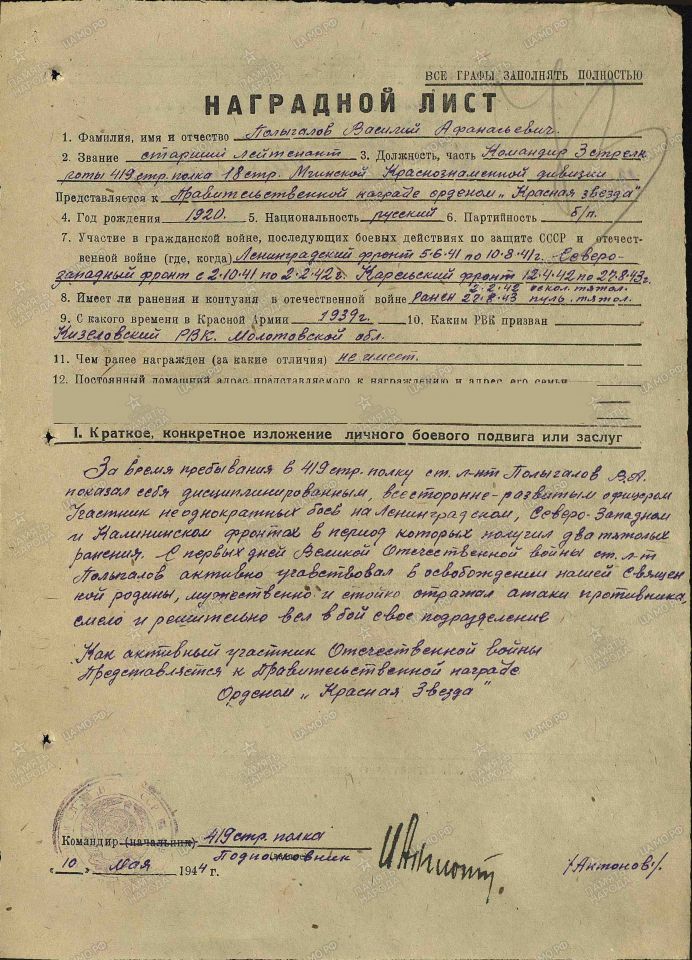 ВСЕ ГРАФЫ ЗАПОЛНЯТЬ ПОЛНОСТЬЮ
НАГРАДНОЙ ЛИСТ
1. Фамилия, имя и отчество Полыгалов Василий Афанасьевич.
2. Звание старший лейтенант 3. Должность, часть Командир 3 стрелк.
роты 419 стр. полка 18 стр. Мгинской Краснознаменной дивизии
Представляется к Правительственной награде орденом „Красная звезда"
4. Год рождения 1920. 5. Национальность русский 6. Партийность б/п.
7. Участие в гражданской войне, последующих боевых действиях по защите СССР и отечест-
венной войне (где, когда) Ленинградский фронт 5.6.41 по 10.8.41г. Северо-
западный фронт с 2.10.41 по 2.2.42г. Карельский фронт 12.4.42 по 27.8.43г.
2.2.42 оскол. тяжол.
8. Имеет ли ранения и контузия в отечественной войне ранен 27.8.43 пуль. тяжол.
9. С какого времени в Красной Армии 1939г. 10. Каким РВК призван
Кизеловский РВК. Молотовской обл.
11. Чем ранее награжден (за какие отличия) не имеет.
12. Постоянный домашний адрес представляемого к награждению и адрес его семьи
I. Краткое, конкретное изложение личного боевого подвига или заслуг
За время пребывания в 419 стр. полку ст. л-нт Полыгалов В.А.
показал себя дисциплинированным, всесторонне-развитым офицером
Участник неоднократных боев на Ленинградском, Северо-Западном
и Калининском фронтах в период которых получил два тяжолых
ранения. С первых дней Великой Отечественной войны ст. л-т
Полыгалов активно учавствовал в освобождении нашей священ
ной родины, мужественно и стойко отражал атаки противника,
смело и решительно вел в бой свое подразделение
Как активный участник Отечественной войны
Представляется к Правительственной награде
Орденом „Красная Звезда"
Командир (начальник) 419 стр. полка
Подполковник
„10" мая 1944 г.
/Антонов/.
ПАМЯТЬ НАРОДА
ЦАМО.РФ